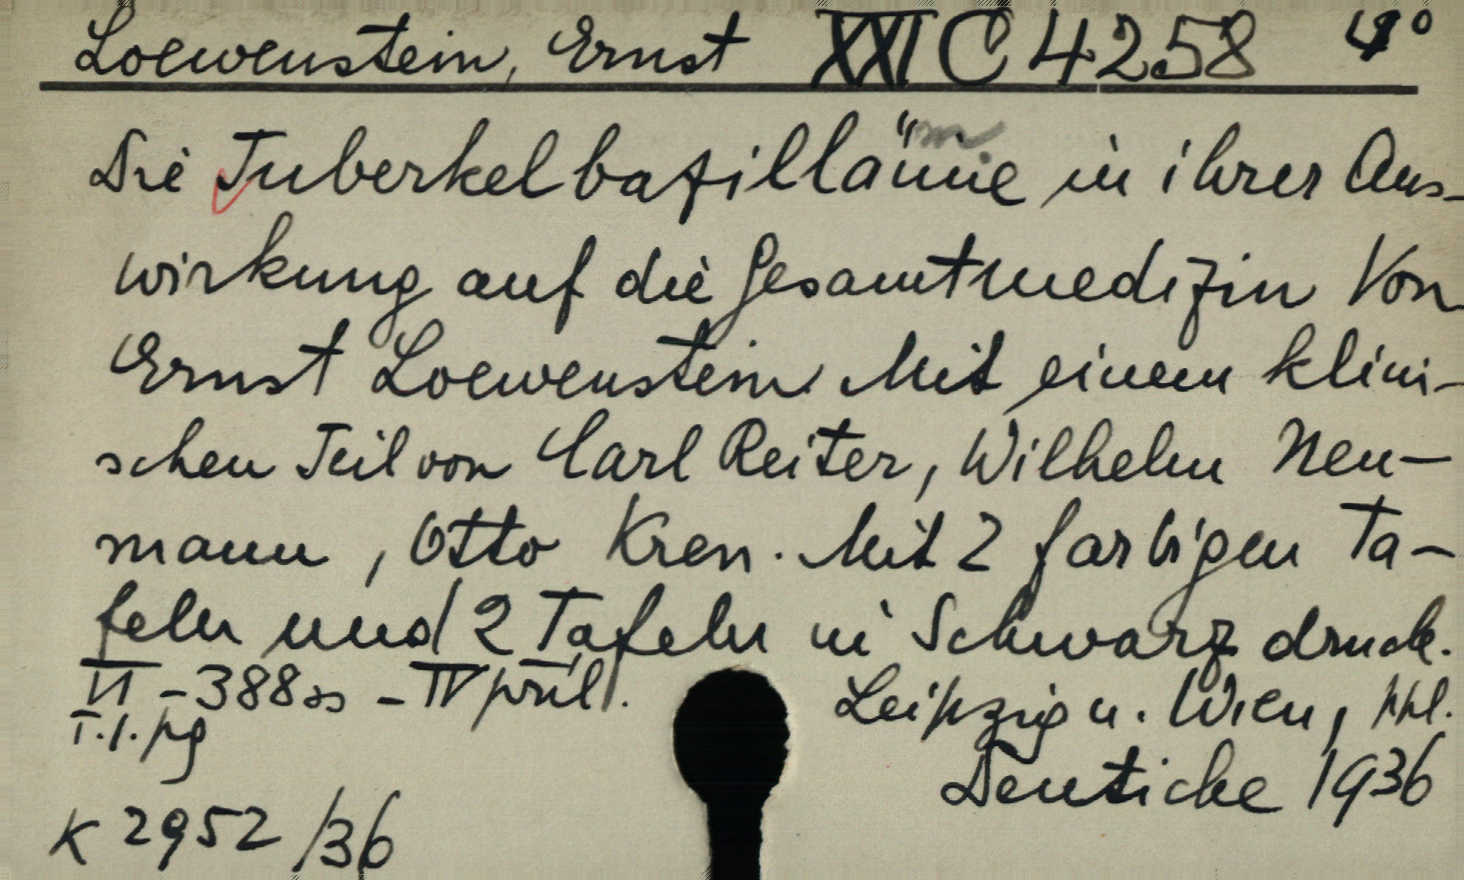 Loewenstein, Ernst XXI C 4258 4°
Die Tuberkelbazillämie in ihrer Aus-
wirkung auf die Gesamtmedizin Von
Ernst Loewenstein. Mit einem klini-
schen Teil von Carl Reiter, Wilhelm Neu-
mann, Otto Kren. Mit 2 farbigen Ta-
feln und 2 Tafeln in Schwarzdruck.
VI - 388 ss - IV příl. Leipzig u. Wien,
T.l. pg
Deuticke 1936
K 2952/36